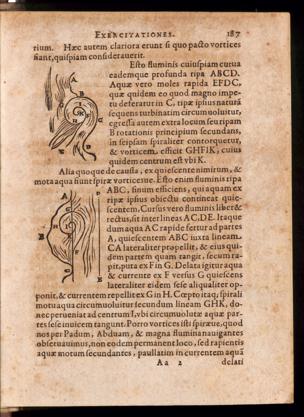 EXERCITATIONES. 187
rium. Hæc autem clariora erunt si quo pacto vortices
fiant, quispiam consideraverit.
Esto fluminis cuiuspiam curua
eademque profunda ripa ABCD.
Aquæ vero moles rapida EFDC,
quæ quidem eo quod magno impe
tu deferatur in C, ripæ ipsius naturã
sequens turbinatim circumuoluitur,
egressa autem extra locum seu ripam
B rotationis principium secundans,
in seipsam spiraliter contorquetur,
& vorticem efficit GHFIK, cuius
quidem centrum est vbi K.
Alia quoque de causa, ex quiescente nimirum, &
mota aqua fiunt spiræ vorticesue. Esto enim fluminis ripa
ABC, sinum efficiens, qui aquam ex
ripæ ipsius obiectu contineat quie-
scentem. Cursus vero fluminis liber &
rectus, sit inter lineas AC, DE. Itaque
dum aqua AC rapide fertur ad partes
A, quiescentem ABC iuxta lineam
CA lateraliter propellit, & eius qui-
dem partem quam tangit, secum ra-
pit, puta ex F in G. Delata igitur aqua
& currente ex F versus G quiescens
lateraliter eidem sese aliqualiter op-
ponit, & currentem repellit ex G in H. Cæpto itaq; spirali
motu aqua circumuoluitur secundum lineam GHK, do-
nec perueniat ad centrum I, vbi circumuolutæ aquæ par-
tes sese inuicem tangunt. Porro vortices isti spiræue, quod
nos per Padum, Abduam, & magna flumina nauigantes
obseruauimus, non eodem permanent loco, sed rapientis
aquæ motum secundantes, paullatim in currentem aquã
Aa 2 delati
A
B
C
D
E
F
G
H
I
K
A
B
C
D
E
F
G
H
I